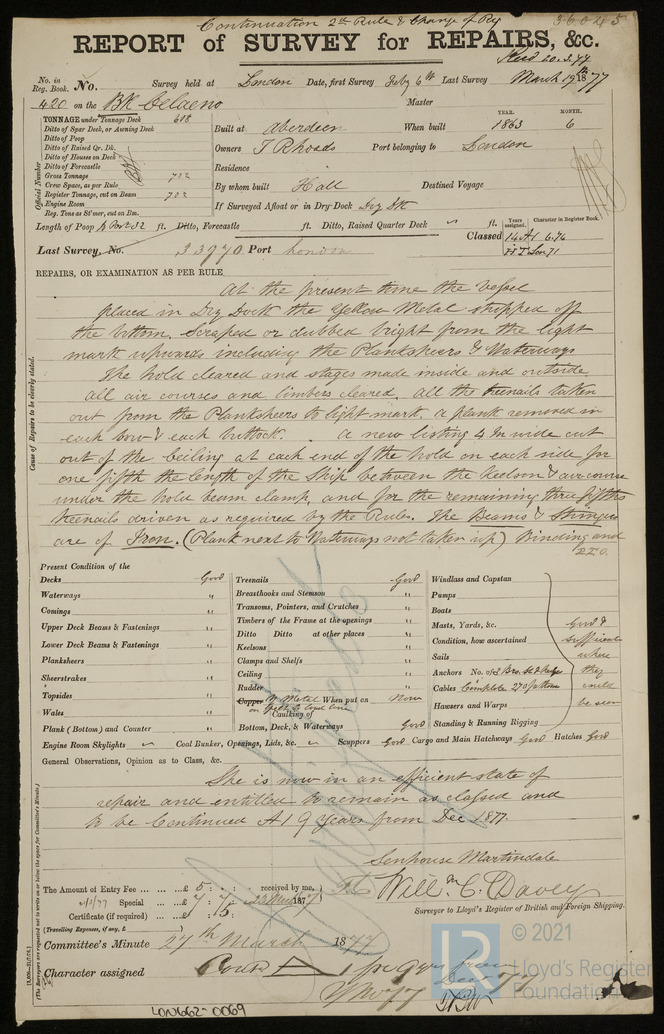 Continuation 2nd Rule & Change of Rig 36025
REPORT of SURVEY for REPAIRS, &c.
Recd 20.3.77
No. in Reg. Book. No. Survey held at London Date, first Survey Feby 6th Last Survey March 19th 1877
420 on the Bk Celaeno Master
TONNAGE under Tonnage Deck 618
Ditto of Spar Deck, or Awning Deck
Ditto of Poop
Ditto of Raised Qr. Dk.
Ditto of Houses on Deck
Ditto of Forecastle
Gross Tonnage 702
Crew Space, as per Rule
Register Tonnage, cut on Beam 702
Engine Room
Reg. Tons as St'mer, cut on Bm.
Official Number
YEAR. MONTH.
Built at Aberdeen When built 1863 6
Owners T Rhoads Port belonging to London
Residence
By whom built Hall Destined Voyage
If Surveyed Afloat or in Dry Dock Dry Dk
Length of Poop ft. Ditto, Forecastle ft. Ditto, Raised Quarter Deck ft.
Years assigned. Character in Register Book.
Last Survey, No. 33970 Port London Classed 14 A1 6.76
REPAIRS, OR EXAMINATION AS PER RULE
At the present time the vessel
placed in Dry Dock the Yellow Metal stripped off
the bottom. Scraped or dubbed bright from the light
mark upwards including the Planksheers & Waterways
The hold cleared and stages made inside and outside
all air courses and limbers cleared. All the treenails taken
out from the Planksheers to light mark, a plank removed in
each bow & each buttock. A new listing 4 In wide cut
out of the Ceiling at each end of the hold on each side for
one fifth the length of the Ship between the Keelson & air course
under the hold beam clamp, and for the remaining three fifths
treenails driven as required by the Rules. The Beams & Stringers
are of Iron. (Plank next to Waterways not taken up) Winding and
Cause of Repairs to be clearly stated.
Present Condition of the
Decks Good
Waterways "
Comings "
Upper Deck Beams & Fastenings "
Lower Deck Beams & Fastenings "
Planksheers "
Sheerstrakes "
Topsides "
Wales "
Plank (Bottom) and Counter "
Treenails Good
Breasthooks and Stemson "
Transoms, Pointers, and Crutches "
Timbers of the Frame at the openings "
Ditto Ditto at other places "
Keelsons "
Clamps and Shelfs "
Ceiling "
Rudder "
Copper Y Metal When put on Now
Caulking of
Bottom, Deck, & Waterways Good
Windlass and Capstan
Pumps
Boats
Masts, Yards, &c.
Condition, how ascertained
Sails
Anchors No. of
Cables Complete
Hawsers and Warps
Standing & Running Rigging
Good & sufficient where they could be seen
Engine Room Skylights Coal Bunker, Openings, Lids, &c. Scuppers Good Cargo and Main Hatchways Good Hatches Good
General Observations, Opinion as to Class, &c.
She is now in an efficient state of
repair and entitled to remain as classed and
to be Continued A1 9 years from Dec 1877.
Senhouse Martindale
The Amount of Entry Fee £ 5 : : received by me,
Special £
Certificate (if required)
(Travelling Expenses, if any, £ )
Willm C Davey
Surveyor to Lloyd's Register of British and Foreign Shipping.
Committee's Minute 27th March 1877
Character assigned Contd A 1 for 9 yrs from Dec 77
(The Surveyors are requested not to write on or below the space for Committee's Minute.)
LON662-0069
© 2021
LR
Lloyd's Register
Foundation